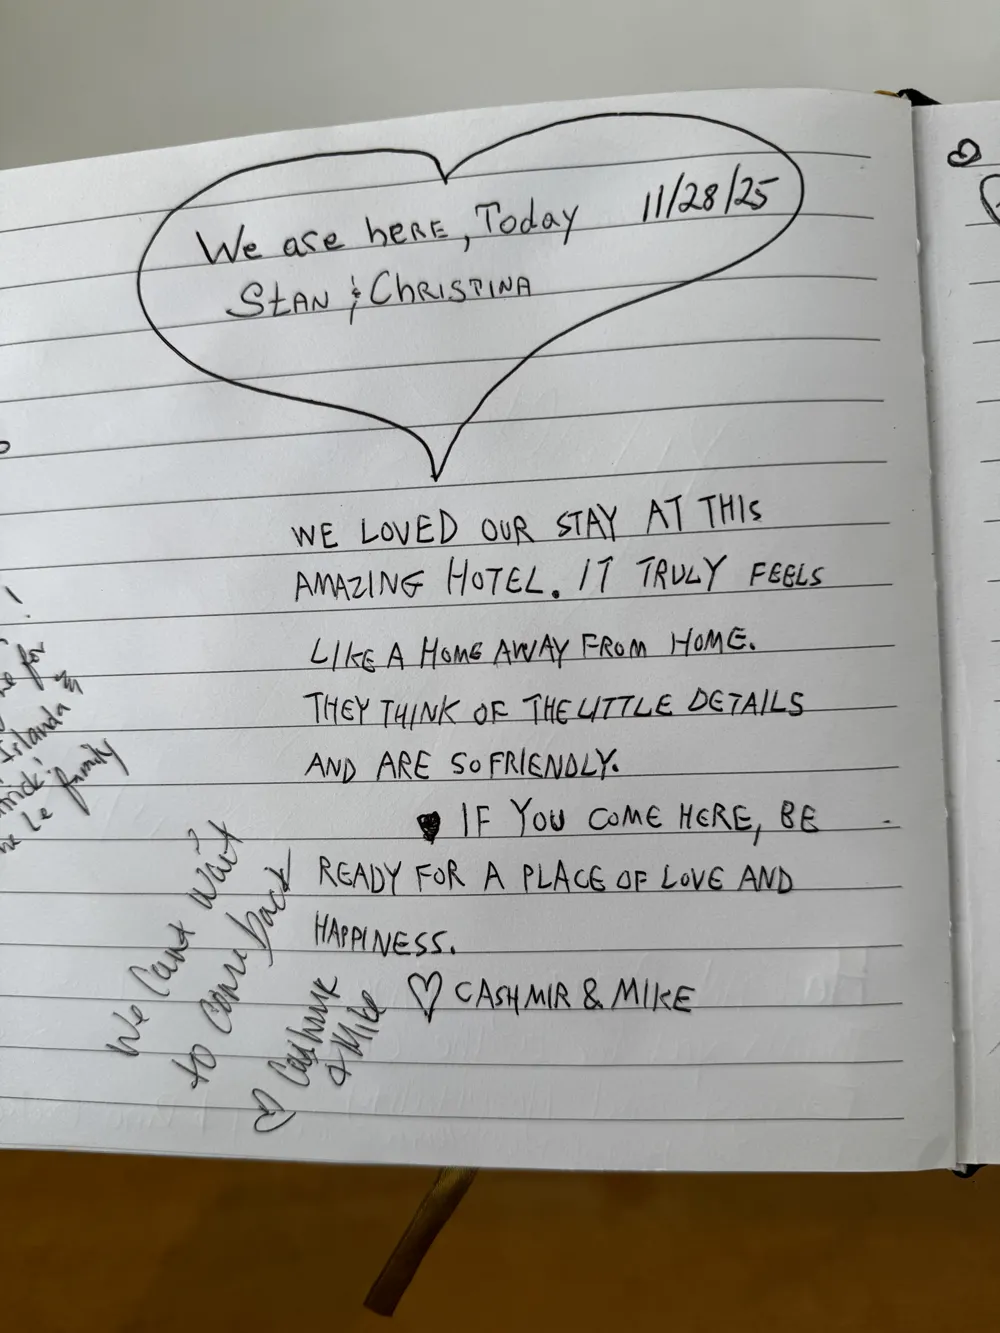 We are here, Today 11/28/25
Stan & Christina
WE LOVED OUR STAY AT THIS
AMAZING HOTEL. IT TRULY FEELS
LIKE A HOME AWAY FROM HOME.
THEY THINK OF THE LITTLE DETAILS
AND ARE SO FRIENDLY.
IF YOU COME HERE, BE
READY FOR A PLACE OF LOVE AND
HAPPINESS.
♡ CASHMIR & MIKE
We Cant wait
to come back
♡ Cashmir
& Mike
for
Islanda
le family